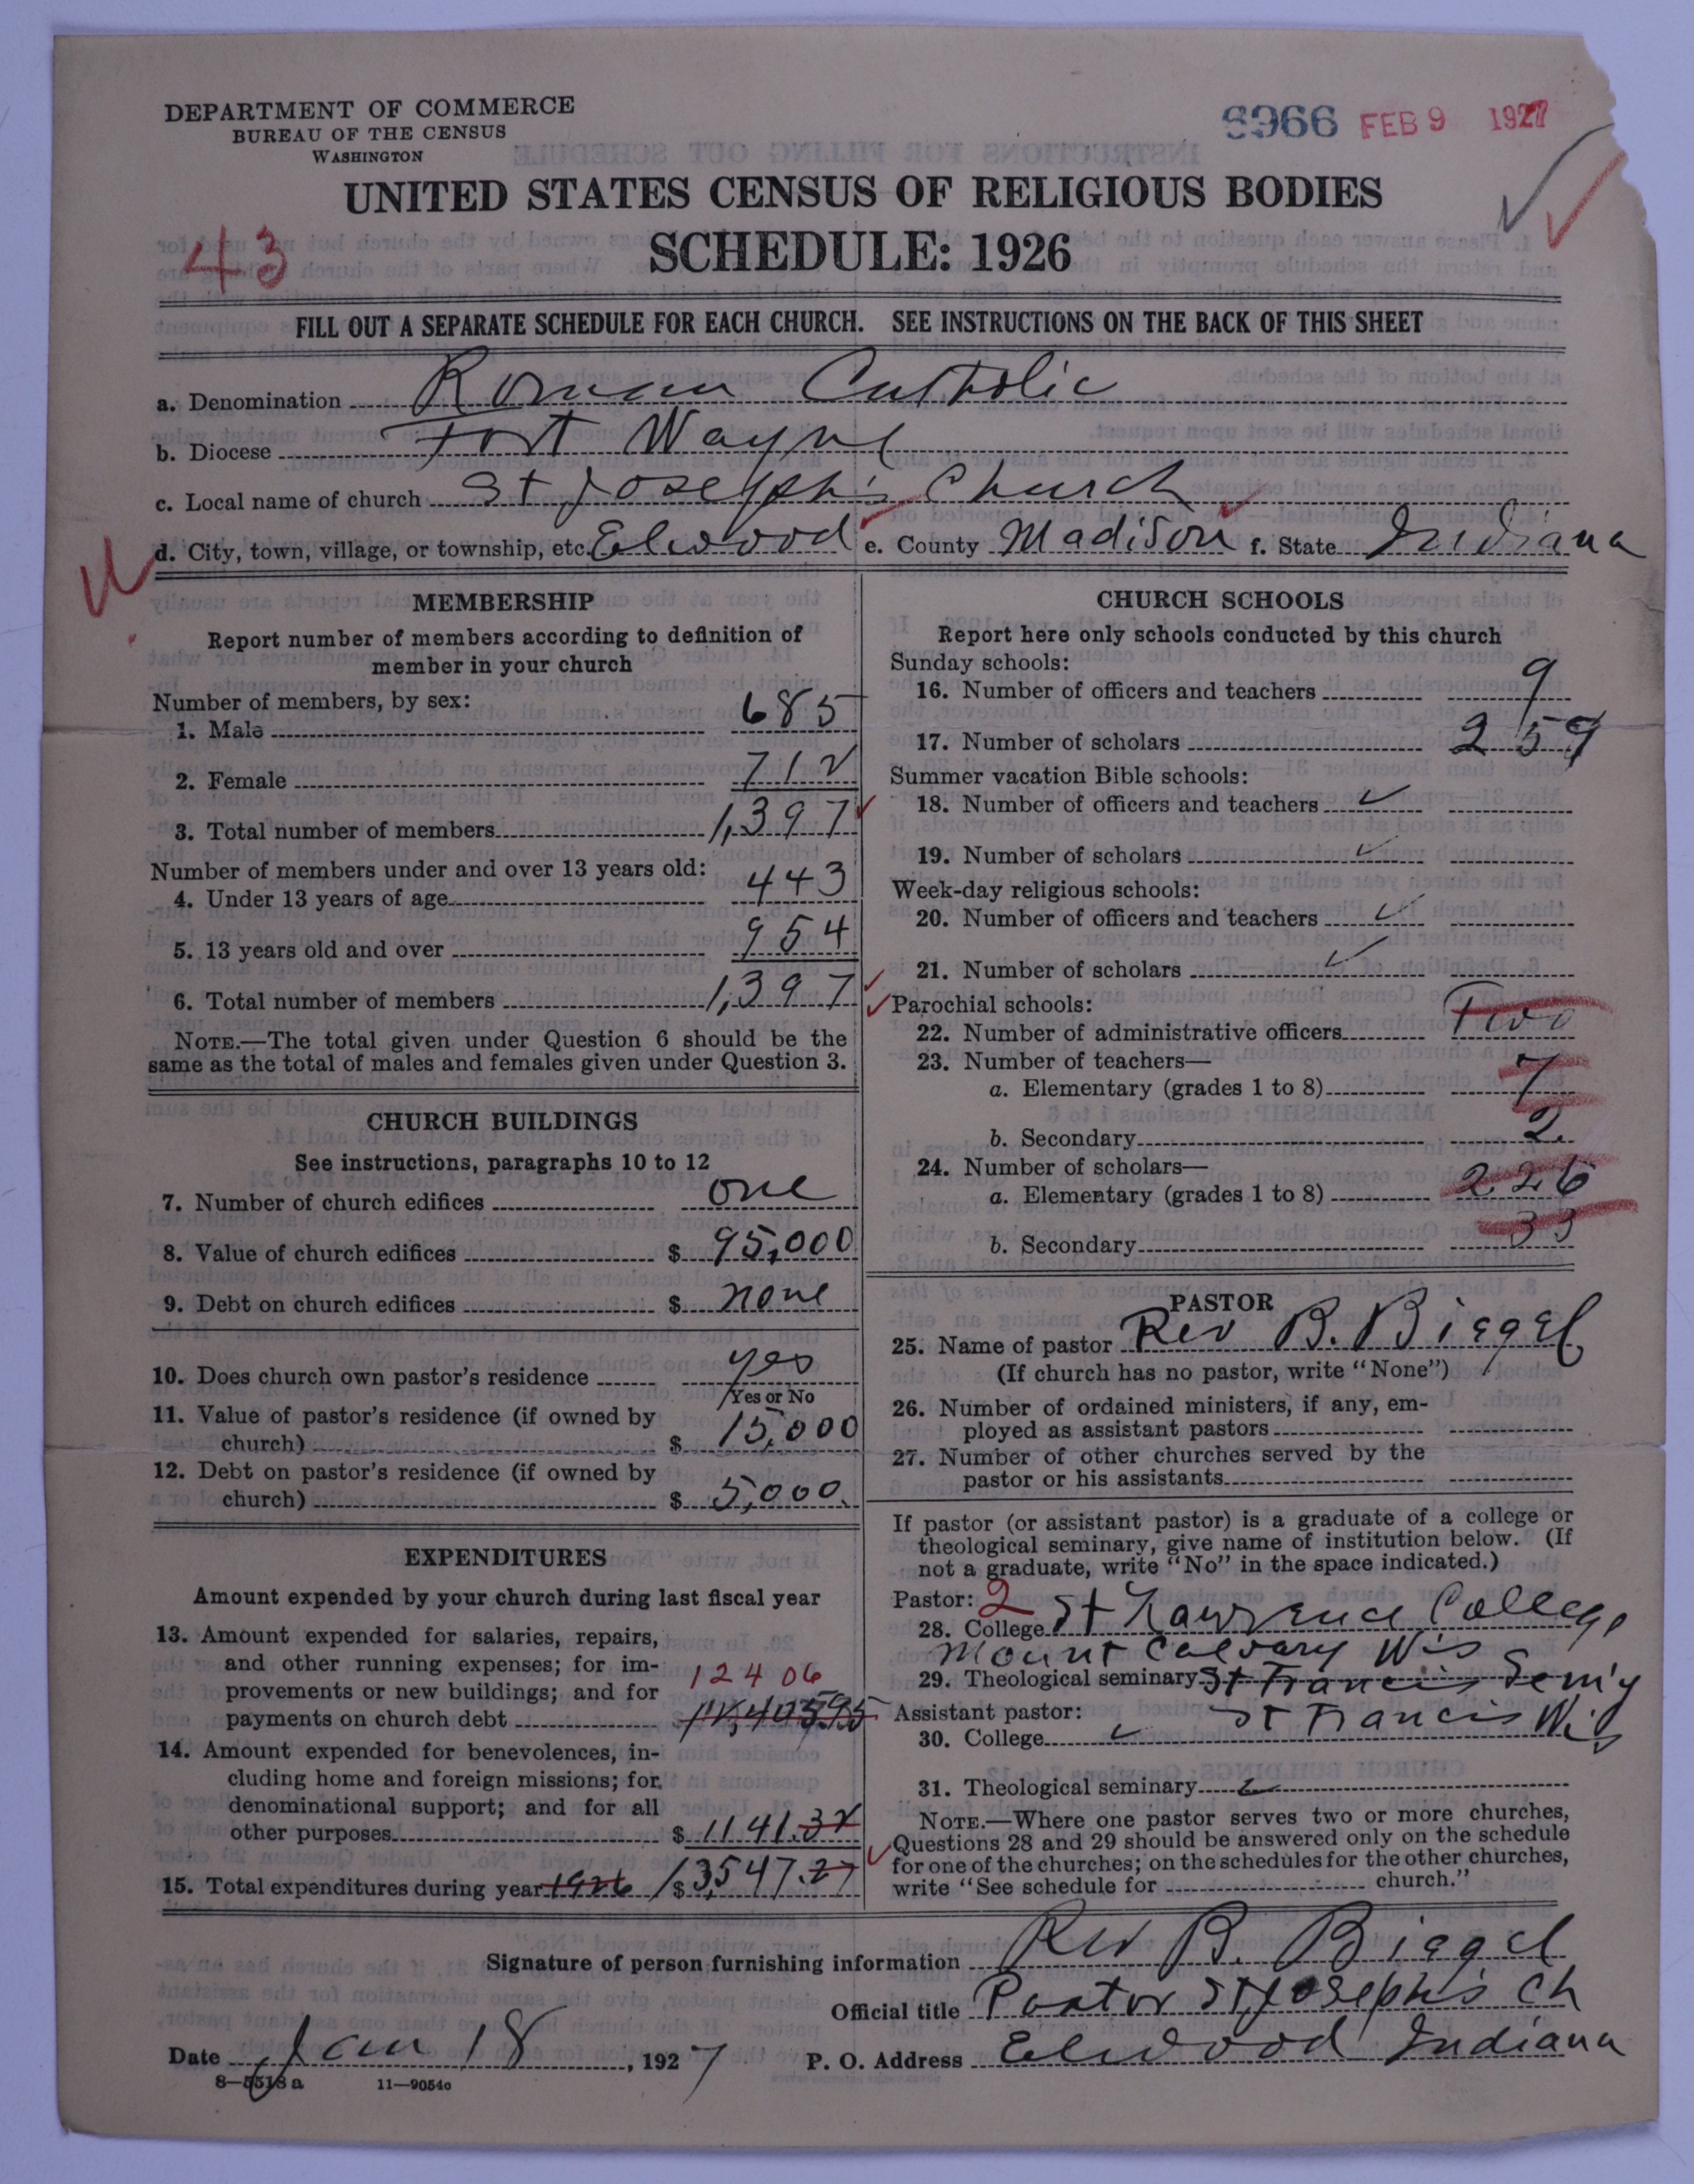 DEPARTMENT OF COMMERCE
BUREAU OF THE CENSUS
WASHINGTON
6966 FEB 9 1927
UNITED STATES CENSUS OF RELIGIOUS BODIES
43
SCHEDULE: 1926
FILL OUT A SEPARATE SCHEDULE FOR EACH CHURCH. SEE INSTRUCTIONS ON THE BACK OF THIS SHEET
a. Denomination Roman Catholic
b. Diocese Fort Wayne
c. Local name of church St Joseph's Church
d. City, town, village, or township, etc. Elwood e. County Madison f. State Indiana
MEMBERSHIP
Report number of members according to definition of
member in your church
Number of members, by sex:
1. Male 685
2. Female 712
3. Total number of members 1,397
Number of members under and over 13 years old:
4. Under 13 years of age 443
5. 13 years old and over 954
6. Total number of members 1,397
NOTE.—The total given under Question 6 should be the
same as the total of males and females given under Question 3.
CHURCH BUILDINGS
See instructions, paragraphs 10 to 12
7. Number of church edifices one
8. Value of church edifices $ 95,000
9. Debt on church edifices $ none
10. Does church own pastor's residence yes
Yes or No
11. Value of pastor's residence (if owned by
church) $ 15,000
12. Debt on pastor's residence (if owned by
church) $ 5,000
EXPENDITURES
Amount expended by your church during last fiscal year
13. Amount expended for salaries, repairs,
and other running expenses; for im-
provements or new buildings; and for 12406
payments on church debt
14. Amount expended for benevolences, in-
cluding home and foreign missions; for
denominational support; and for all
other purposes $ 1141.32
15. Total expenditures during year 1926 $ 13,547.27
CHURCH SCHOOLS
Report here only schools conducted by this church
Sunday schools:
16. Number of officers and teachers 9
17. Number of scholars 259
Summer vacation Bible schools:
18. Number of officers and teachers
19. Number of scholars
Week-day religious schools:
20. Number of officers and teachers
21. Number of scholars
Parochial schools:
22. Number of administrative officers Two
23. Number of teachers—
a. Elementary (grades 1 to 8) 7
b. Secondary 2
24. Number of scholars—
a. Elementary (grades 1 to 8) 226
b. Secondary 33
PASTOR
25. Name of pastor Rev B. Biegel
(If church has no pastor, write "None")
26. Number of ordained ministers, if any, em-
ployed as assistant pastors
27. Number of other churches served by the
pastor or his assistants
If pastor (or assistant pastor) is a graduate of a college or
theological seminary, give name of institution below. (If
not a graduate, write "No" in the space indicated.)
Pastor: 2
28. College St Lawrence College
Mount Calvary Wis
29. Theological seminary St Francis Sem'y
Assistant pastor: St Francis Wis
30. College
31. Theological seminary
NOTE.—Where one pastor serves two or more churches,
Questions 28 and 29 should be answered only on the schedule
for one of the churches; on the schedules for the other churches,
write "See schedule for church."
Signature of person furnishing information Rev B. Biegel
Official title Pastor St Joseph's Ch
Date Jan 18, 1927 P. O. Address Elwood Indiana
8—5518 a 11—9054c